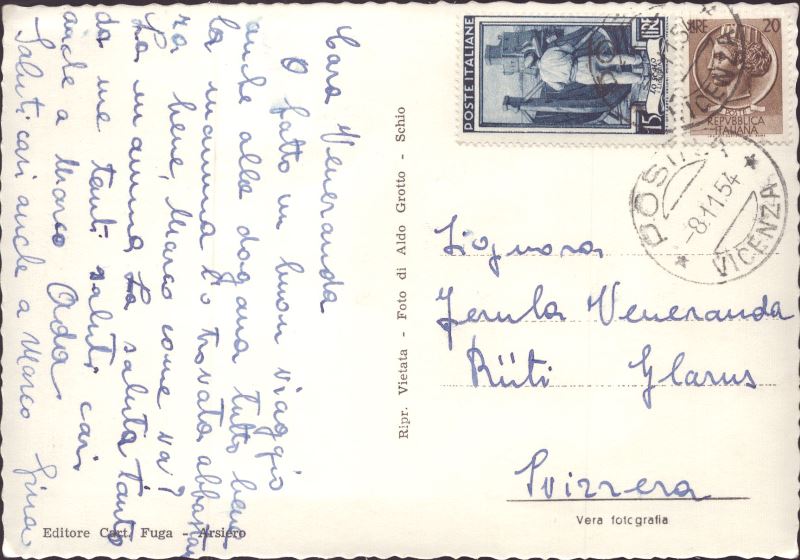 Cara Veneranda
O fatto un buon viaggio
anche alla dogana tutto bene
la mamma l'o trovata abbastan
za bene, Marco come va?
La mamma La saluta tanto
da me tanti saluti cari
anche a Marco Ada
Saluti cari anche a Marco Gina
Editore Cart. Fuga - Arsiero
Ripr. Vietata - Foto di Aldo Grotto - Schio
POSTE ITALIANE
LIRE
15
LIRE 20
REPVBBLICA
ITALIANA
POSINA
-8.11.54
VICENZA
Signora
Jerula Veneranda
Rüti Glarus
Svizzera
Vera fotografia